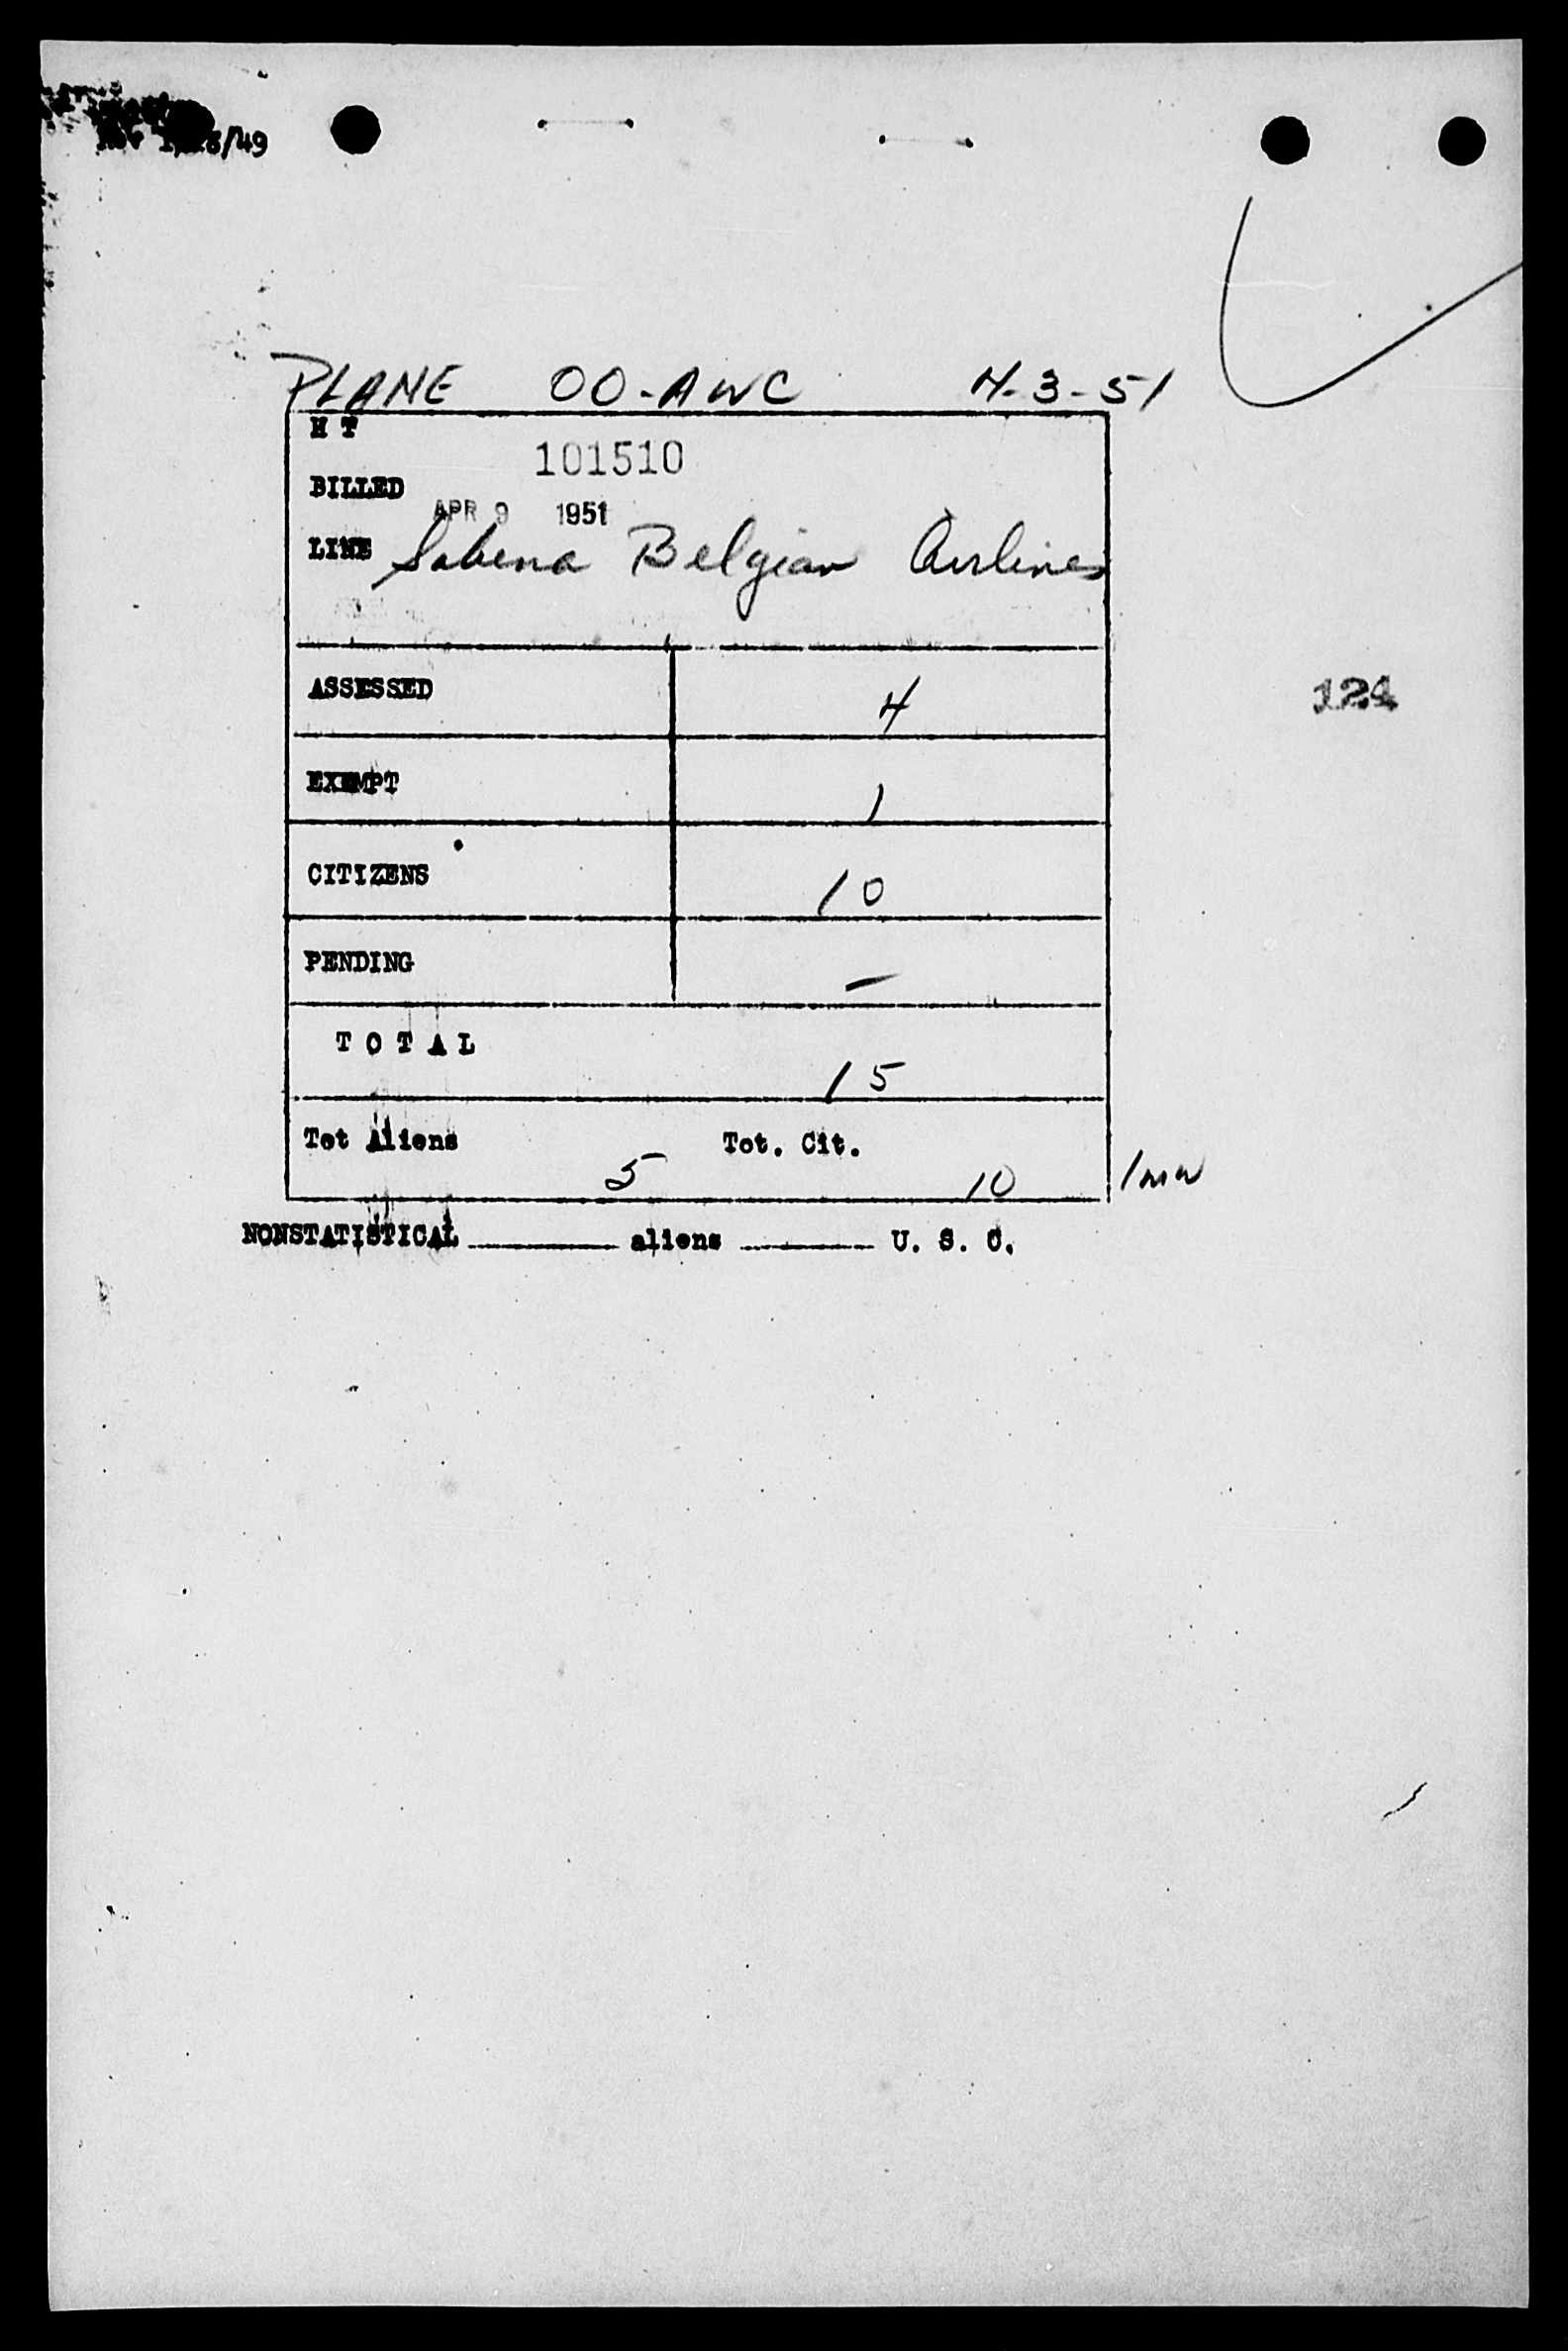 /49
PLANE OO-AWC 4-3-51
H T
101510
BILLED
APR 9 1951
LINE Sabena Belgian Airlines
ASSESSED 4
124
EXEMPT 1
CITIZENS 10
PENDING —
T O T A L
15
Tot Aliens 5 Tot. Cit. 10
NONSTATISTICAL ______ aliens ______ U. S. C.